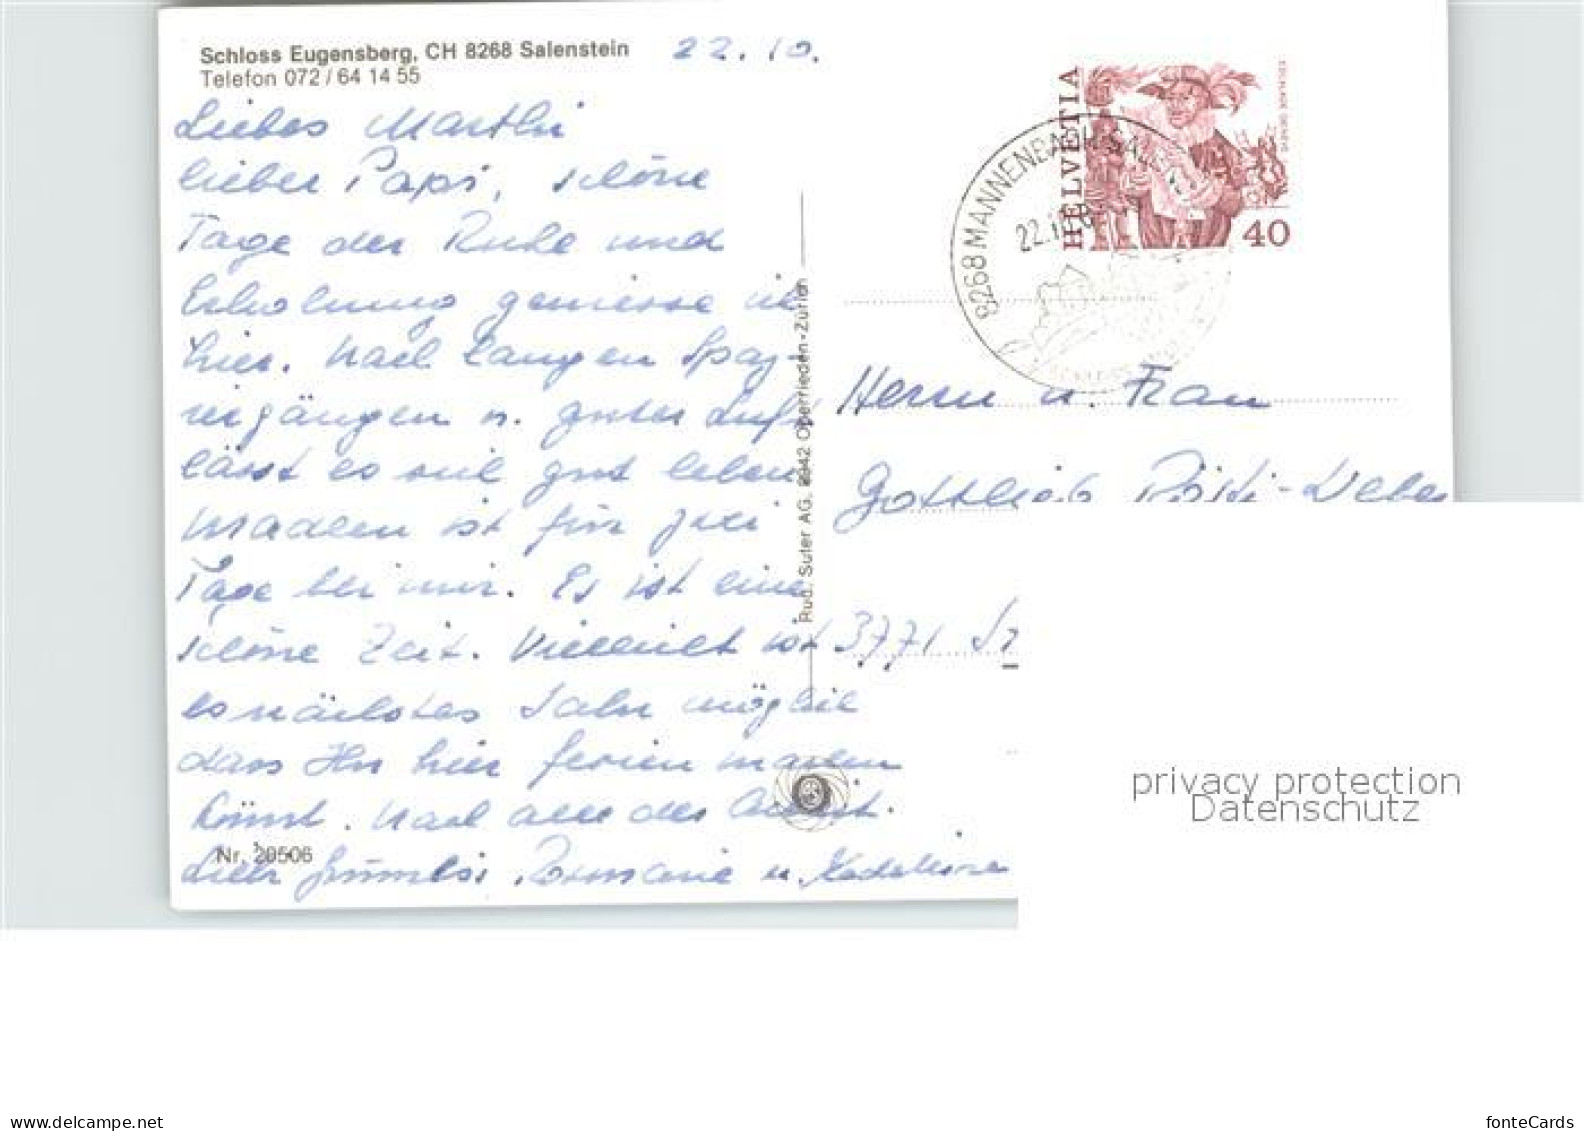 Schloss Eugensberg, CH 8268 Salenstein
Telefon 072 / 64 14 55
22. 10.
Liebes Marthi
lieber Papi, schöne
Tage der Ruhe und
Erholung geniesse ich
hier. Nach langen Spaz-
iergängen u. guter Luft
lässt es sich gut leben
Madlen ist für zwei
Tage bei mir. Es ist eine
schöne Zeit. Vielleicht ist
es nächstes Jahr möglich
dass Ihr hier Ferien machen
könnt. Nach all der Arbeit.
Liebi Grüessli
Nr. 20506
Rud. Suter AG. 8942 Oberrieden-Zürich
HELVETIA
40
8268 MANNENBACH-SALEN
22.10.8
SCHLOSS
Herrn u. Frau
Gottlieb
3771
privacy protection
Datenschutz
www.delcampe.net
fonteCards